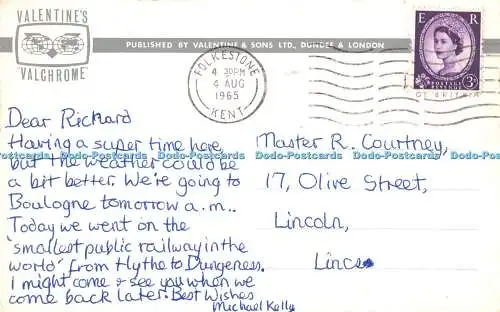 VALENTINE'S
"VALCHROME"
PUBLISHED BY VALENTINE & SONS LTD., DUNDEE & LONDON
FOLKESTONE
4 30PM
4 AUG
1965
KENT
E R
POSTAGE POSTAGE
3D
OF BRITAIN
Dear Richard
Having a super time here,
but the weather could be
a bit better. We're going to
Boulogne tomorrow a.m..
Today we went on the
'smallest public railway in the
world' from Hythe to Dungeness.
I might come & see you when we
come back later. Best Wishes
Michael Kelly
Master R. Courtney,
17, Olive Street,
Lincoln,
Lincs
Dodo-Postcards Dodo-Postcards Dodo-Postcards Dodo-Postcards Dodo-Postcards Dodo-Postcards